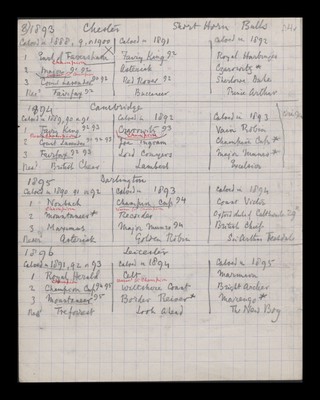 8/1893 Chester Short Horn Bulls
Calved in 1888, 9, or 1890 Calved in 1891 Calved in 1892
1 Earl of Faversham Fairy King 92 Royal Harbinger
Champion
2 Major 91 92 Rottcask
3 Count Lavender 90 92 Red Rover 92
Res Fairfax 92 Buccaneer Prince Arthur
1894 Cambridge
Calved in 1889, 90 or 91 Calved in 1892 Calved in 1893
1 Fairy King 92 93 93 Vain Robin
Champion
2 Count Lavender Joe Ingram Champion Cup *
3 Fairfax 92 93 Lord Conyers Major Munro *
Res British Cheer Lambert
1895 Darlington
Calved in 1890 91 or 92 Calved in 1893 Calved in 1894
1 Nonbach Champion Cup 94 Count Victor
Champion
2 Mountaineer * Recorder
3 Maximus Major Munro 94 British Chief
Reserve Asteroid Golden Robin Sir Arthur
1896 Leicester
Calved in 1891, 92 or 93 Calved in 1894 Calved in 1895
1 Royal Herald Celt Marmion
Champion
2 Champion Cup 94 95 Wiltshire Count Bright Archer
3 Mountaineer 95 Border Reiver * Marengo *
Res Treforest Look Ahead The New Boy